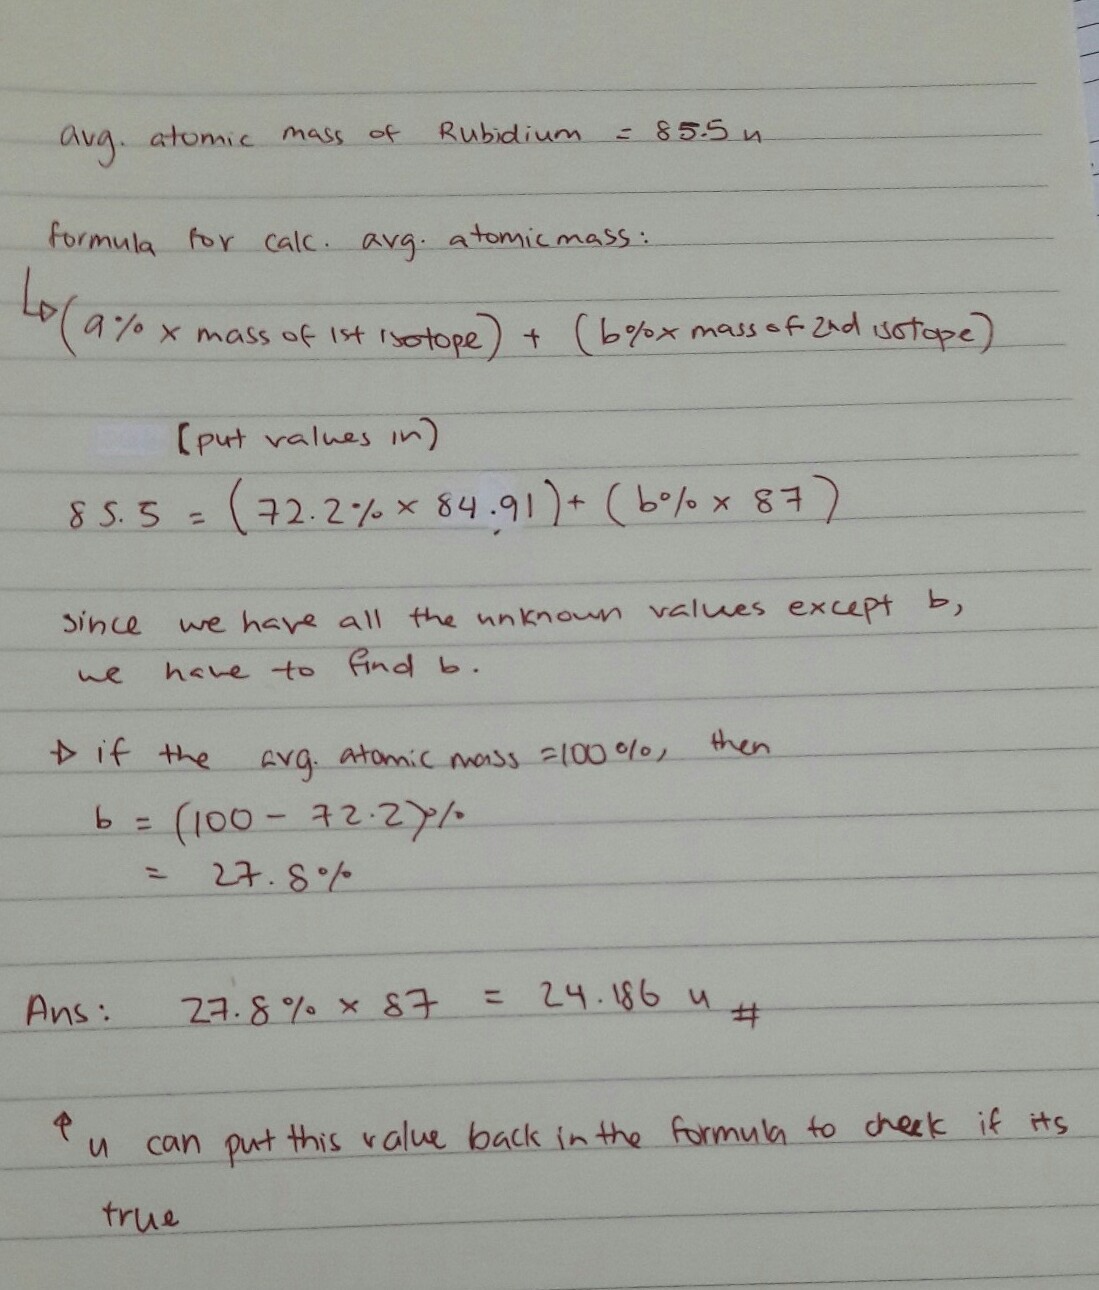 avg. atomic mass of Rubidium = 85.5 u
formula for calc. avg. atomic mass:
↳(a% x mass of 1st isotope) + (b% x mass of 2nd isotope)
[put values in)
85.5 = (72.2% x 84.91) + (b% x 87)
since we have all the unknown values except b,
we have to find b.
→ if the avg. atomic mass =100%, then
b = (100 - 72.2)%
= 27.8%
Ans: 27.8% x 87 = 24.186 u #
↑ u can put this value back in the formula to check if its
true